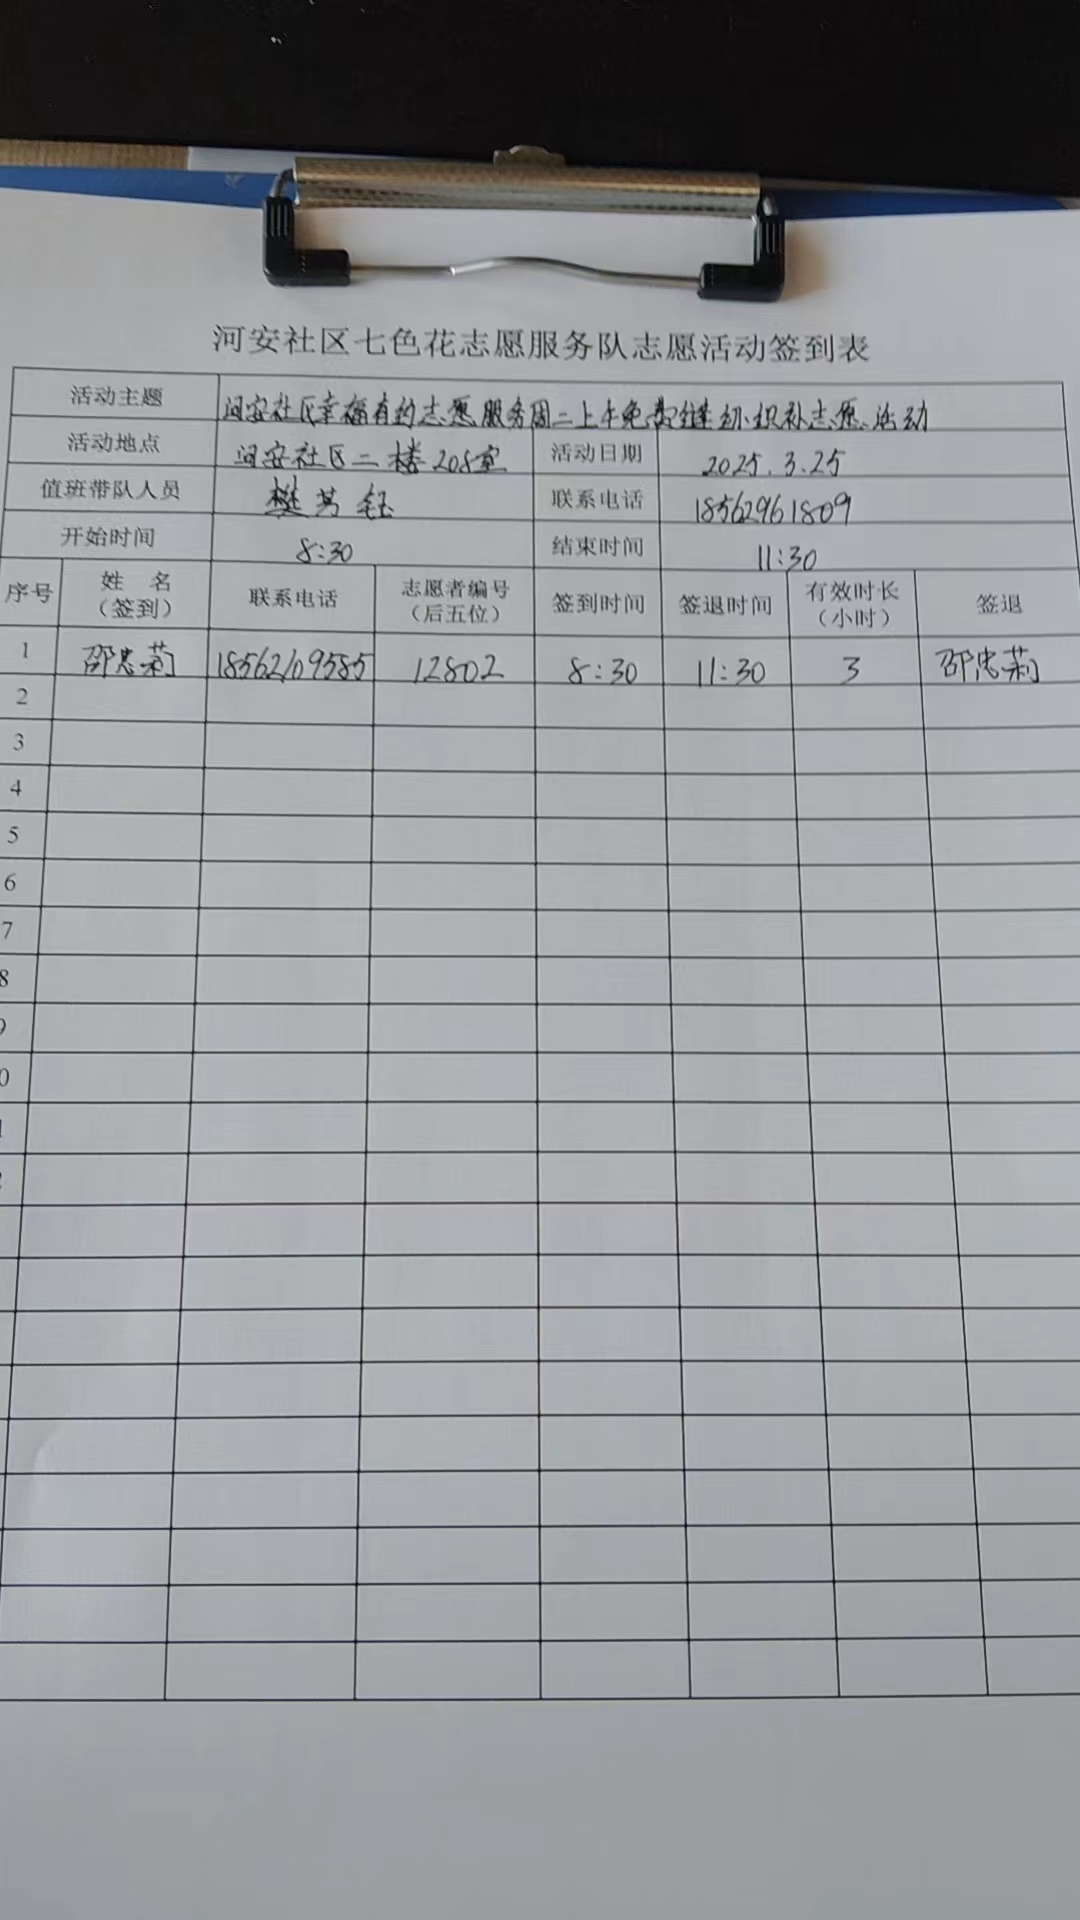 河安社区七色花志愿服务队志愿活动签到表
活动主题 河安社区幸福有约志愿服务周二上午免费缝纫.织补志愿活动
活动地点 河安社区二楼208室 活动日期 2025.3.25
值班带队人员 樊芳钰 联系电话 18562961809
开始时间 8:30 结束时间 11:30
序号 姓 名（签到） 联系电话 志愿者编号（后五位） 签到时间 签退时间 有效时长（小时） 签退
1 邵忠莉 18562109585 12802 8:30 11:30 3 邵忠莉
2
3
4
5
6
7
8
9
0
1
2